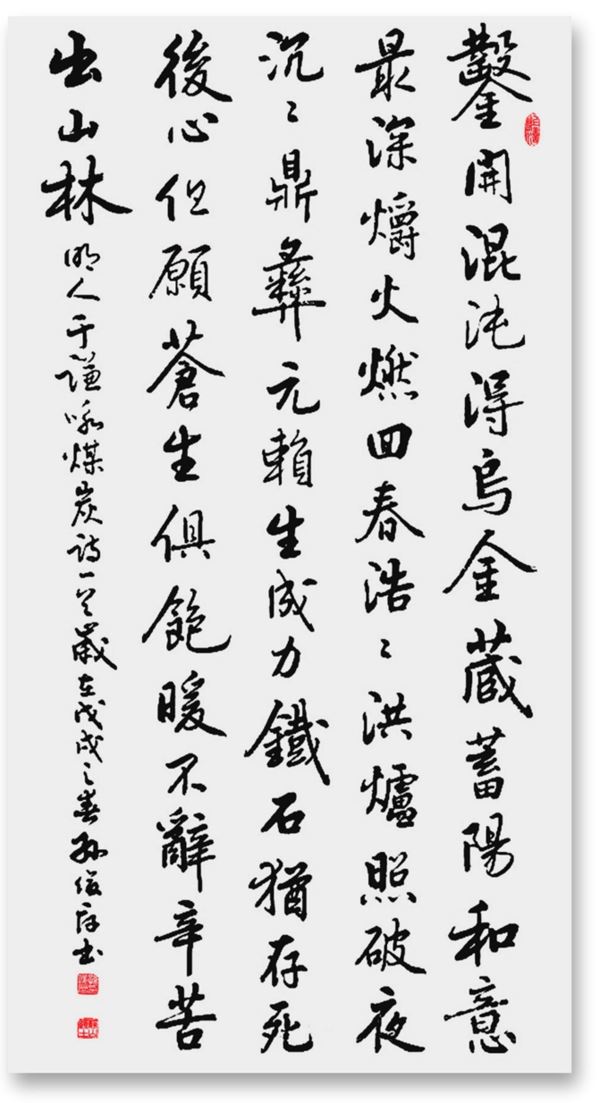 鑿開混沌得烏金藏蓄陽和意
最深爝火燃回春浩〻洪爐照破夜
沉〻鼎彝元賴生成力鐵石猶存死
後心但願蒼生俱飽暖不辭辛苦
出山林明人于謙咏煤炭詩一首歲在戊戌之春孫俊書